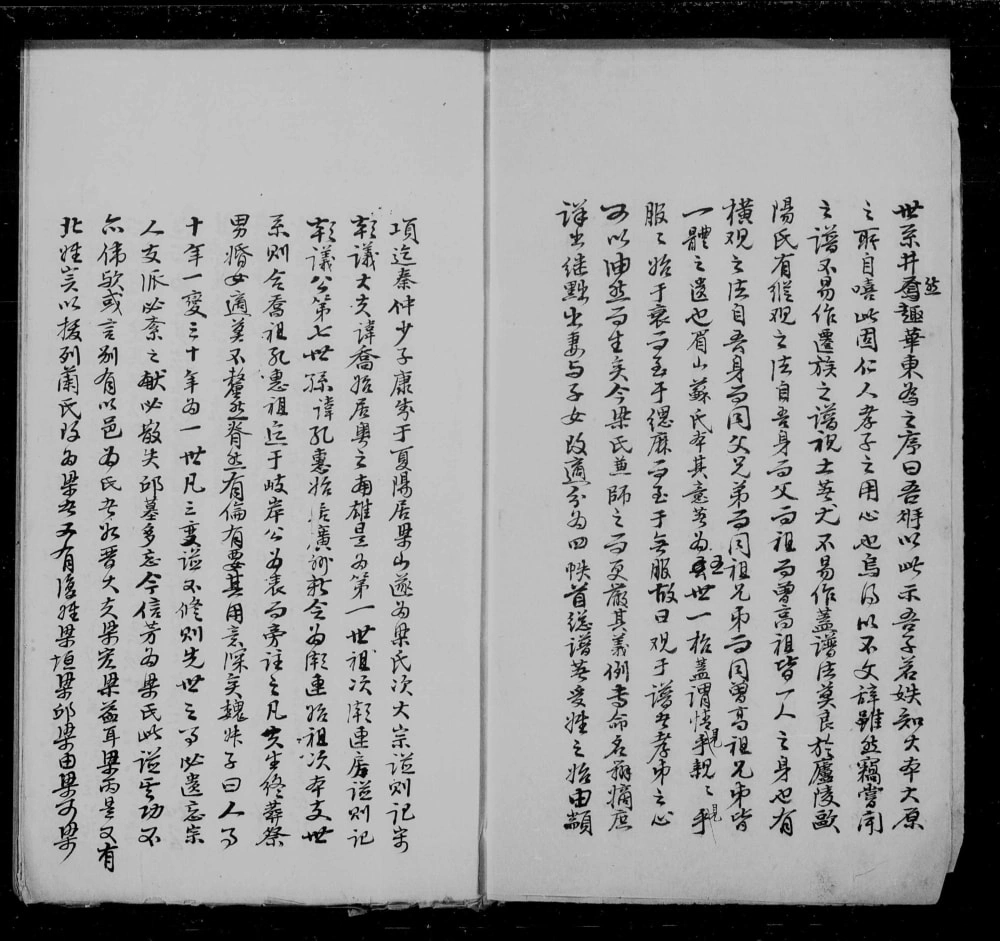 世系井然焉趣華東為之序曰吾將以此示吾子若姓知大本大原
之所自嘻此固仁人孝子之用心也烏得以不文辭雖然竊嘗聞
之譜不易作遷族之譜視土著尤不易作蓋譜法莫良於廬陵歐
陽氏有縱觀之法自吾身而父而祖而曾高祖皆一人之身也有
橫觀之法自吾身而同父兄弟而同祖兄弟而同曾高祖兄弟皆
一體之遺也眉山蘇氏本其意著為五世一格蓋謂情見乎親親見乎
服服始于衰而至于緦麻而至于無服故曰觀于譜者孝弟之心
可以油然而生矣今梁氏兼師之而更嚴其義例書命名辨嫡庶
詳出繼黜出妻与子女改適分為四帙首總譜著受姓之始由顓
頊迄秦仲少子康封于夏陽居梁山遂為梁氏次大宗譜則記宋
朝議大夫諱喬始居粵之南雄是為第一世祖次瀕連房譜則記
朝議公第七世孫諱孔惠始居廣州新會為瀕連始祖次本支世
系則合喬祖孔惠祖迄于岐岸公為表而旁註之凡夫生終葬祭
男婚女適莫不釐然脊然有倫有要其用意深矣魏姝子曰人事
十年一變三十年為一世凡三變譜不修則先世之事必遺忘宗
人支派必紊文獻必散失邱墓多忘今信芳為梁氏此譜其功不
亦偉歟或言別有以邑為氏者如晉大夫梁宏梁益耳梁丙是又有
北姓芺以拔列蘭氏改為梁者又有複姓梁垣梁邱梁由梁可梁